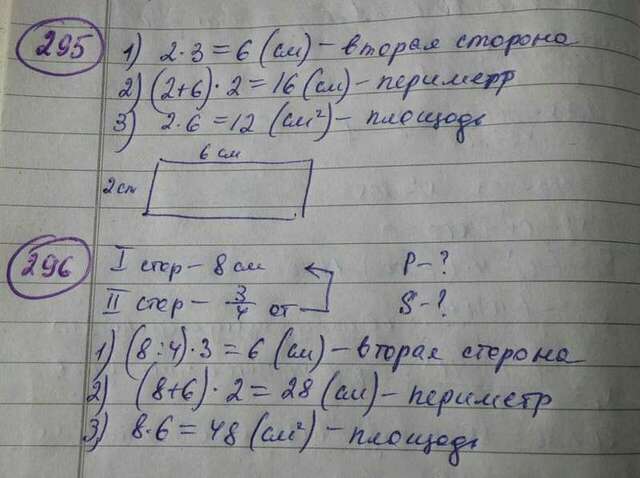 295
1) 2·3=6 (см) – вторая сторона
2) (2+6)·2=16 (см) – периметр
3) 2·6=12 (см²) – площадь
6 см
2 см
296
I стор – 8 см P–?
II стор – 3/4 от S–?
1) (8:4)·3=6 (см) – вторая сторона
2) (8+6)·2=28 (см) – периметр
3) 8·6=48 (см²) – площадь